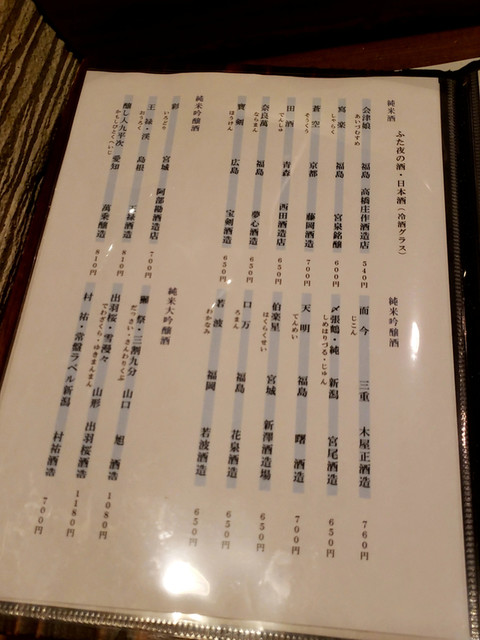 純米酒　ふた夜の酒・日本酒（冷酒グラス）
会津娘　福島　高橋庄作酒造店　540円
あいづむすめ
寫楽　福島　宮泉銘醸　600円
しゃらく
蒼空　京都　藤岡酒造　700円
そうくう
田酒　青森　西田酒造店　650円
でんしゅ
奈良萬　福島　夢心酒造　650円
ならまん
寶剣　広島　宝剣酒造　650円
ほうけん
純米吟醸酒
彩　宮城　阿部勘酒造店　700円
いろどり
王祿・渓　島根　王祿酒造　810円
おうろく
醸し人九平次　愛知　萬乗醸造　810円
かもしびとくへいじ
純米吟醸酒
而今　三重　木屋正酒造　760円
じこん
〆張鶴・純　新潟　宮尾酒造　650円
しめはりづる・じゅん
天明　福島　曙酒造　700円
てんめい
伯楽星　宮城　新澤酒造場　650円
はくらくせい
口万　福島　花泉酒造　650円
ろまん
若波　福岡　若波酒造　650円
わかなみ
純米大吟醸酒
獺祭・三割九分　山口　旭酒造　1080円
だっさい・さんわりくぶ
出羽桜・雪漫々　山形　出羽桜酒造　1180円
でわざくら・ゆきまんまん
村祐・常盤ラベル　新潟　村祐酒造　700円